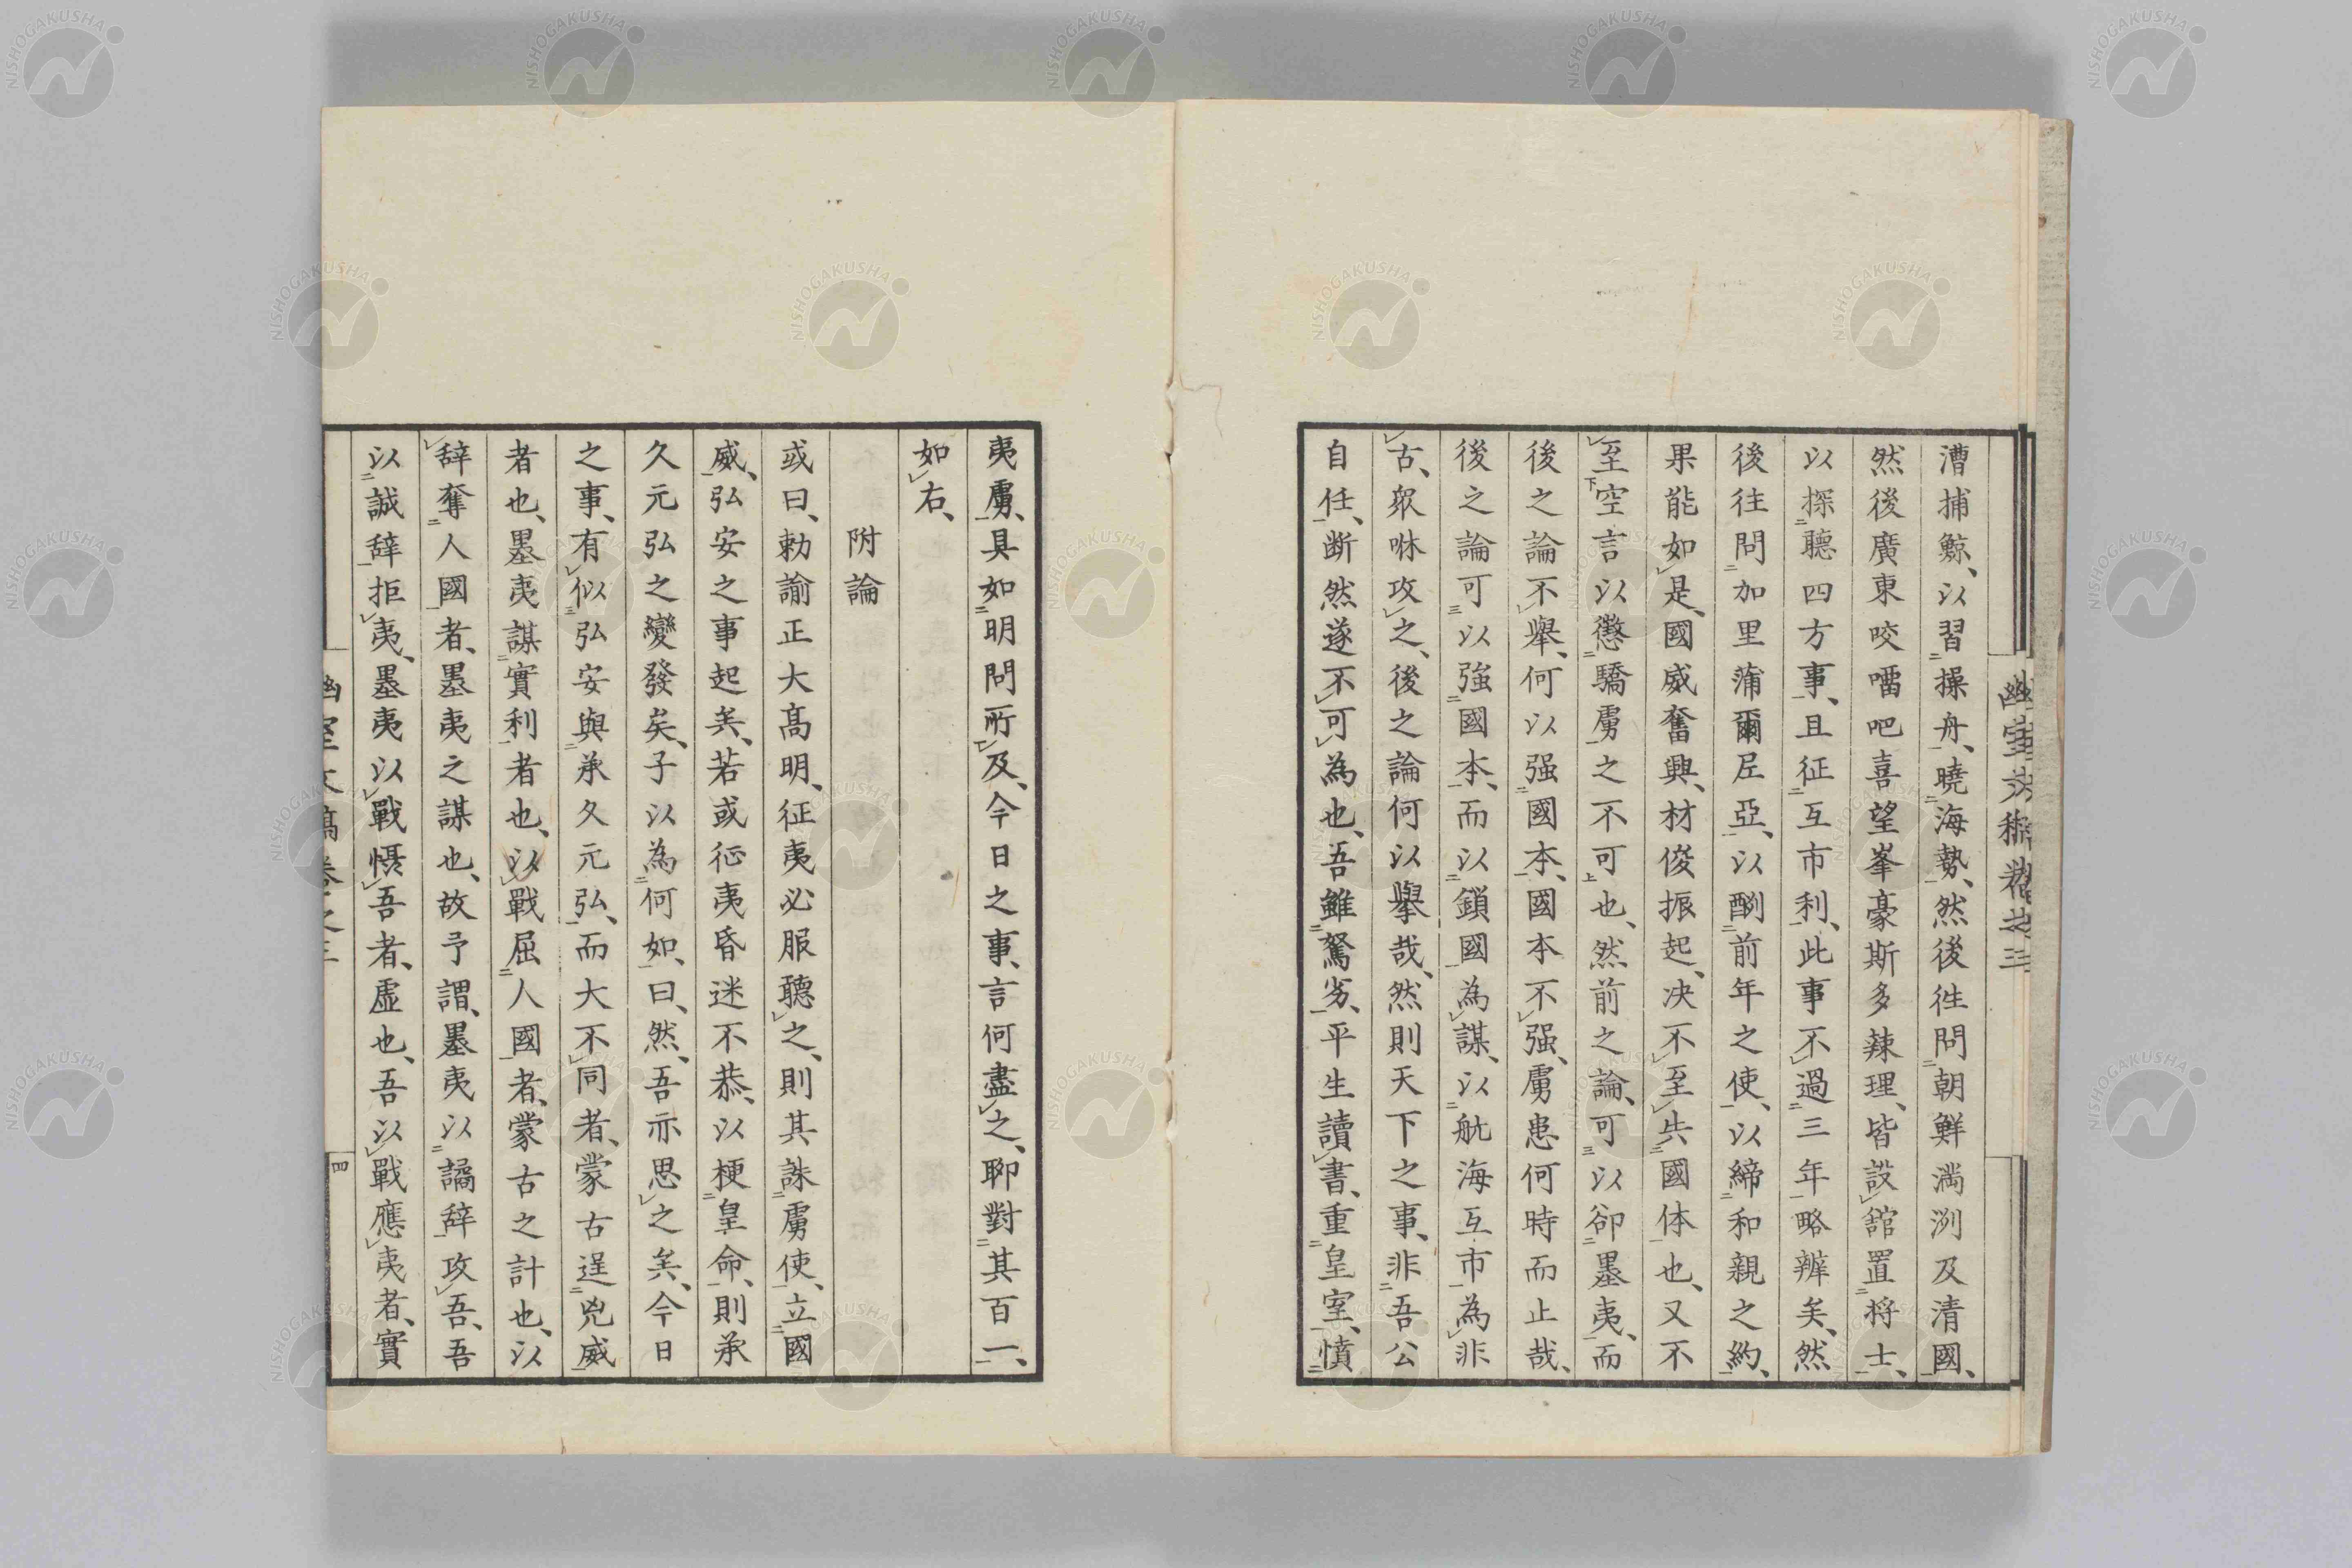 漕捕鯨、以習操舟、曉海勢、然後徃問朝鮮滿洌及清國、
然後廣東咬𠺕吧喜望峯豪斯多辣理、皆設舘置将士、
以探聽四方事、且征互市利、此事不過三年略辨矣、然
後往問加里蒲爾尼亞、以酬前年之使、以締和親之約、
果能如是、國威奮興、材俊振起、决不至失國体也、又不
至空言以懲驕虜之不可也、然前之論、可以卻墨夷、而
後之論不舉、何以强國本、國本不强、虜患何時而止哉、
後之論可以強國本、而以鎖國為謀、以航海互市為非
古、衆咻攻之、後之論何以擧哉、然則天下之事、非吾公
自任、断然遂不可為也、吾雖駑劣、平生讀書、重皇室、憤
夷虜、具如明問所及、今日之事、言何盡之、聊對其百一、
如右、
附論
或曰、勅諭正大髙明、征夷必服聽之、則其誅虜使、立國
威、弘安之事起矣、若或征夷昏迷不恭、以梗皇命、則承
久元弘之變發矣、子以為何如、曰、然、吾亦思之矣、今日
之事、有似弘安與承久元弘、而大不同者、蒙古逞兇威
者也、墨夷謀實利者也、以戰屈人國者、蒙古之計也、以
辞奪人國者、墨夷之謀也、故予謂、墨夷以譎辞攻吾、吾
以誠辞拒夷、墨夷以戰慑吾者、虚也、吾以戰應夷者、實
幽室文稿卷之三
四